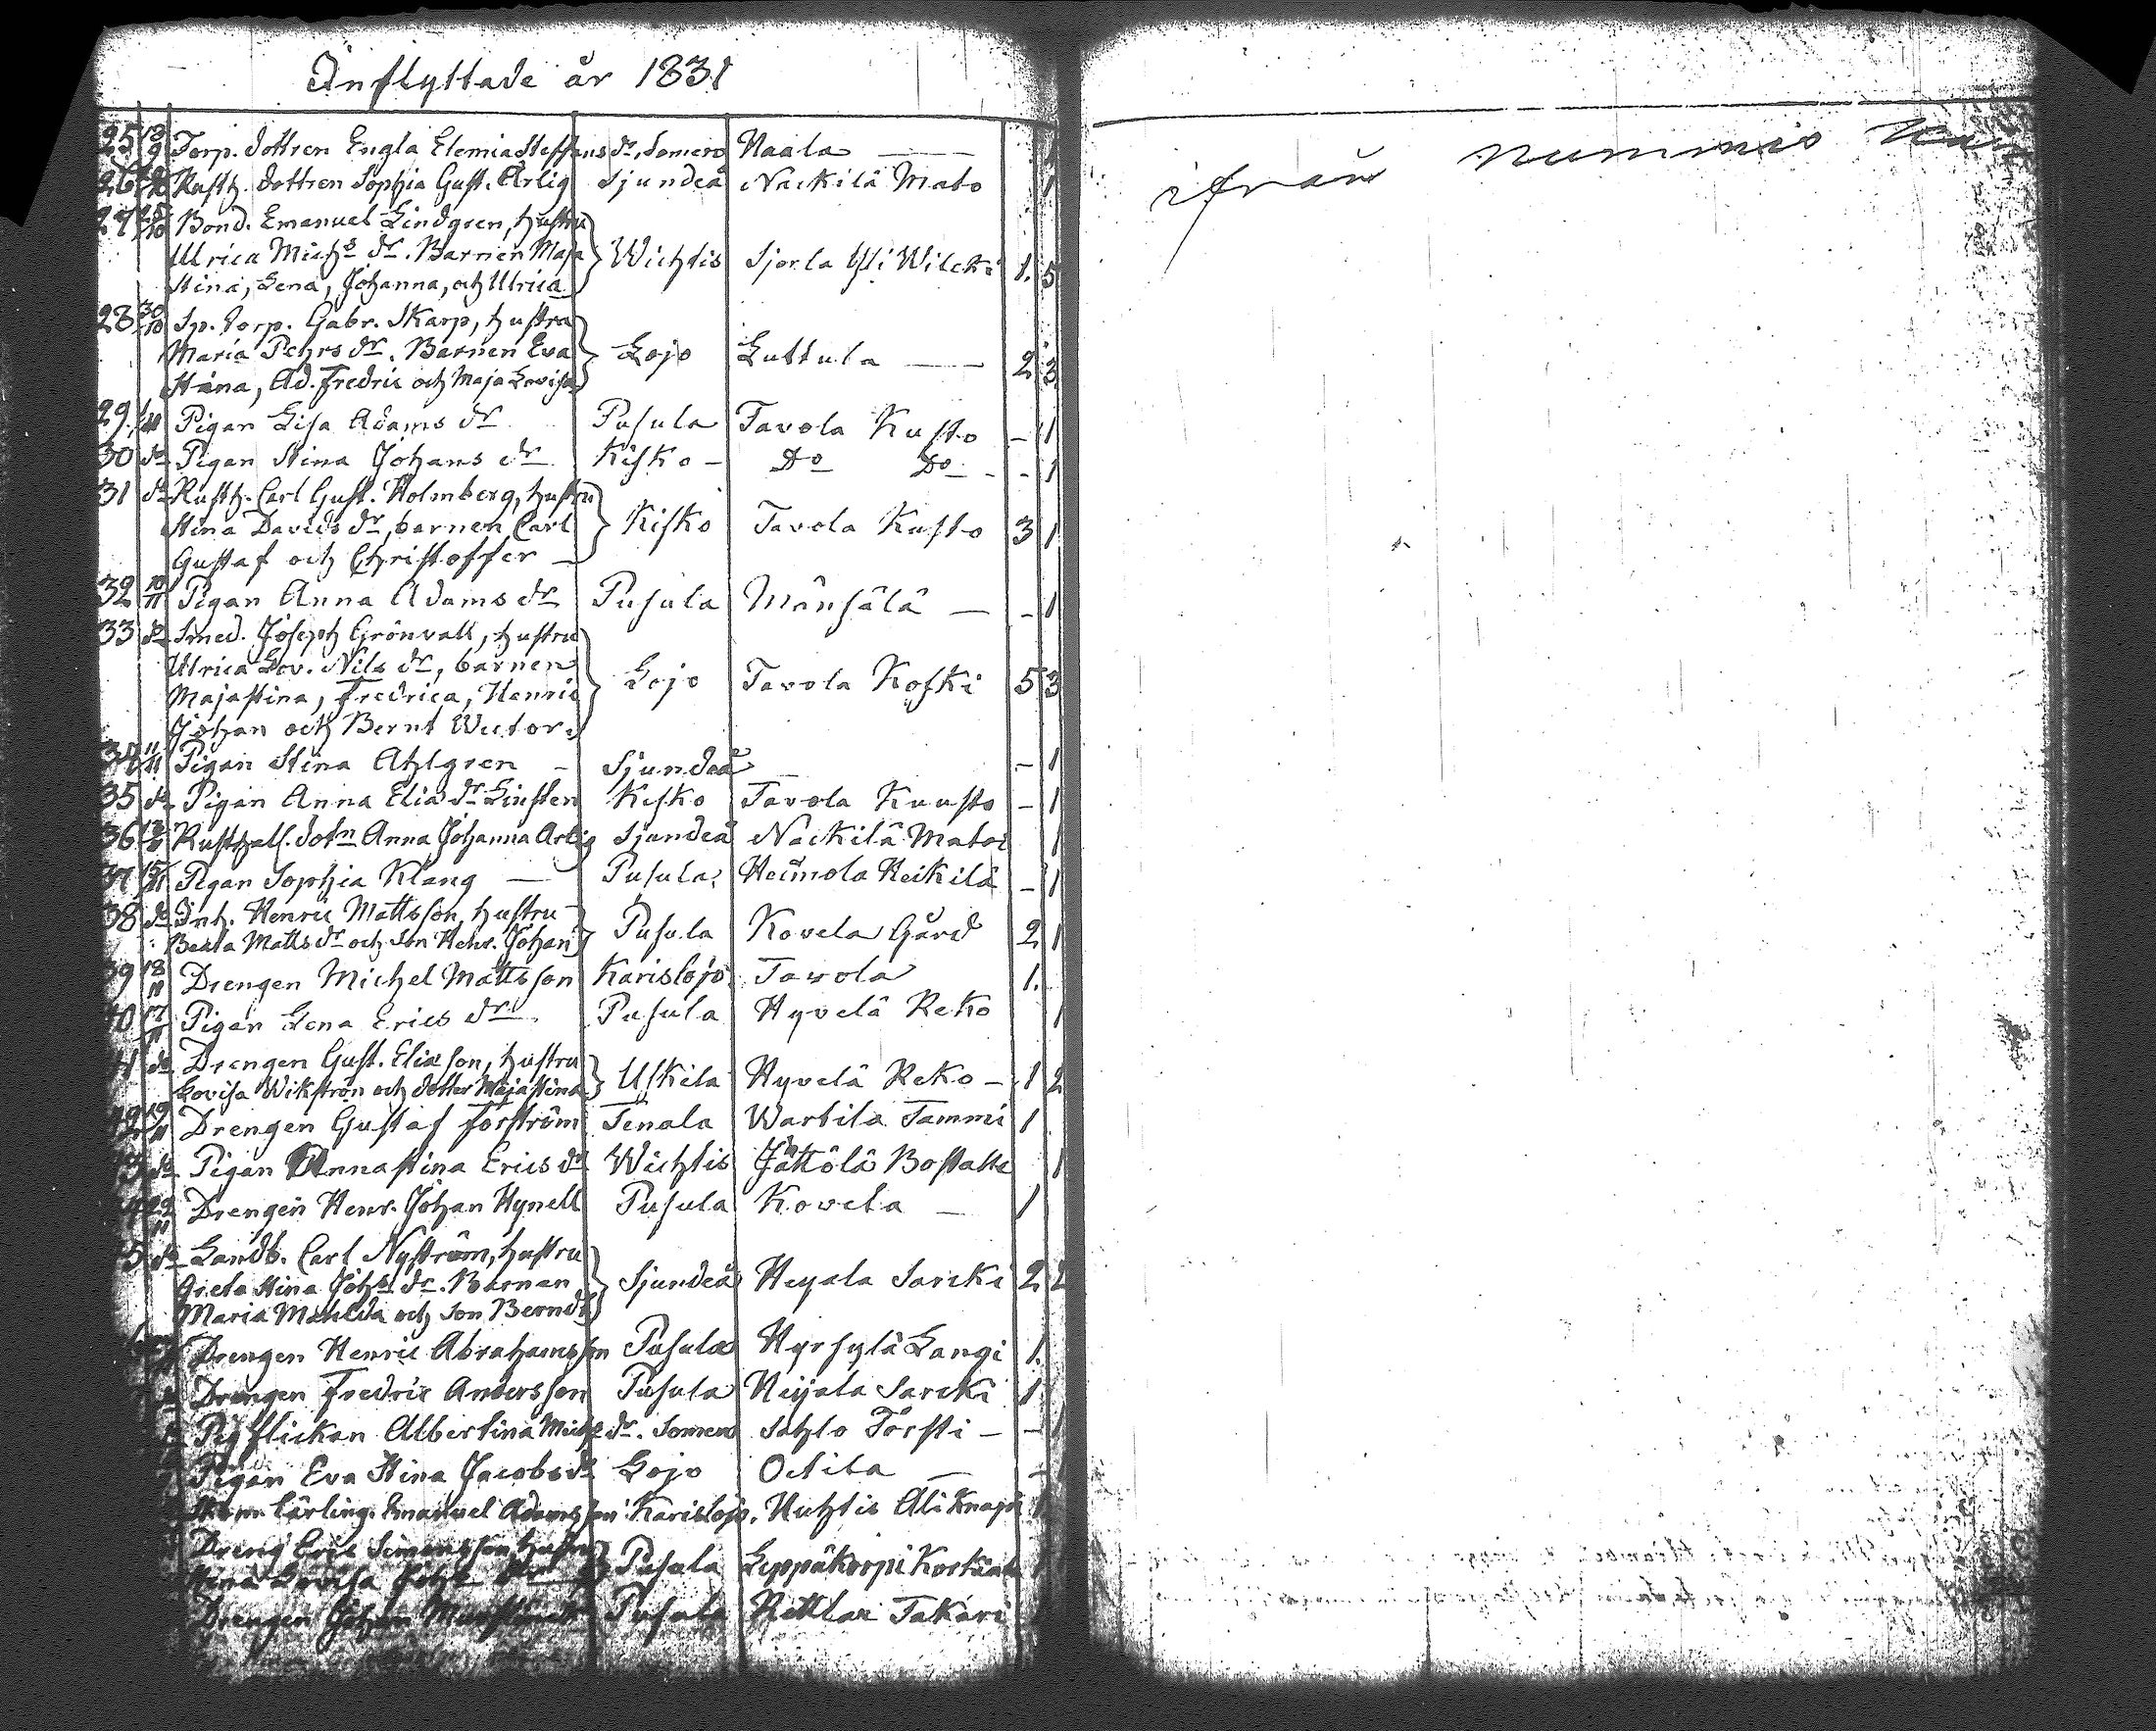 Inflyttade år 1831
25 18/9 Torp. dottren Engla Elemia Steffens dr. Somero Haala —
26 Rusth. dottren Sophia Gust. Arlig Sjundeå Nackilä Mato 1
27 25/10 Bond. Emanuel Lindgren, hustru
Ulrica Michs dr. Barnen Maja Wichtis Sjorla Yli Wilcki 1. 5
Stina, Lena, Johanna, och Ulrica
28 30/10 Sp. torp. Gabr. Skarp, hustru
Maria Pehrs dr. Barnen Eva Lojo Luttula — 2 3
Stina, Ad. Fredric och Maja Lovisa
29 Pigan Lisa Adams dr Pusula Tavola Kusto - 1
30 do Pigan Stina Johans dr Kisko - Do Do - - 1
31 do Rusth. Carl Gust. Holmberg, hustru
Stina Davids dr, barnen Carl Kisko Tavola Kusto 3 1
Gustaf och Christoffer —
32 10/11 Pigan Anna Adams dr Pusula Månsälä — - 1
33 do Smed. Joseph Grönvall, hustru
Ulrica Lov. Nils dr, barnen
Majastina, Fredrica, Henric Lojo Tavola Koski 5 3
Johan och Bernt Wictor
34 11/11 Pigan Stina Ahlgren - Sjundeå - 1
35 do Pigan Anna Elia dr Linsten Kisko Tavola Kuusto - 1
36 Rusthall. dotn Anna Johanna Arlig Sjundeå Nackilä Matoi 1
37 15/11 Pigan Sophia Klang — Pusula Heimola Heikilä - 1
38 do Inh. Henric Mattsson, hustru
Beata Matts dr och son Henr. Johan Pusula Kovela Gård 2 1
39 18/11 Drengen Michel Mattsson Karislojo Tavola 1.
40 17/11 Pigan Lena Erics dr Pusula Hyvelä Reko 1
41 do Drengen Gust. Eliæson, hustru
Lovisa Wikström och dotter Majastina Uskila Hyvelä Reko - 1 2
42 19/11 Drengen Gustaf Forström Tenala Wartila Tammi 1
43 do Pigan Annastina Erics dr Wichtis Jättölä Bostalle 1
22/11 Drengen Henr. Johan Hynell Pusula Kovela — 1
do Landb. Carl Nyström, hustru
Greta Stina Johs dr. Barnen Sjundeå Heyala Sarcki 2 2
Maria Mathilda och son Berndt
Drengen Henric Abrahamsson Pusula Hyrsylä Langi 1.
Drengen Fredric Andersson Pusula Heijala Sarcki 1
Pigflickan Albertina Michs dr. Somero Sahlo Törsti - - 1
Pigan Eva Stina Jacobs dr Lojo Ochila — -
Lärling. Emanuel Adamsson Karislojo. Huhtis Ali Knapi 1
Dreng Eric Simonsson, hustru
Stina Lovisa Johs dr Pusula Leppäkorpi
Drengen Johan Pusula Takari
ifrån Nummis